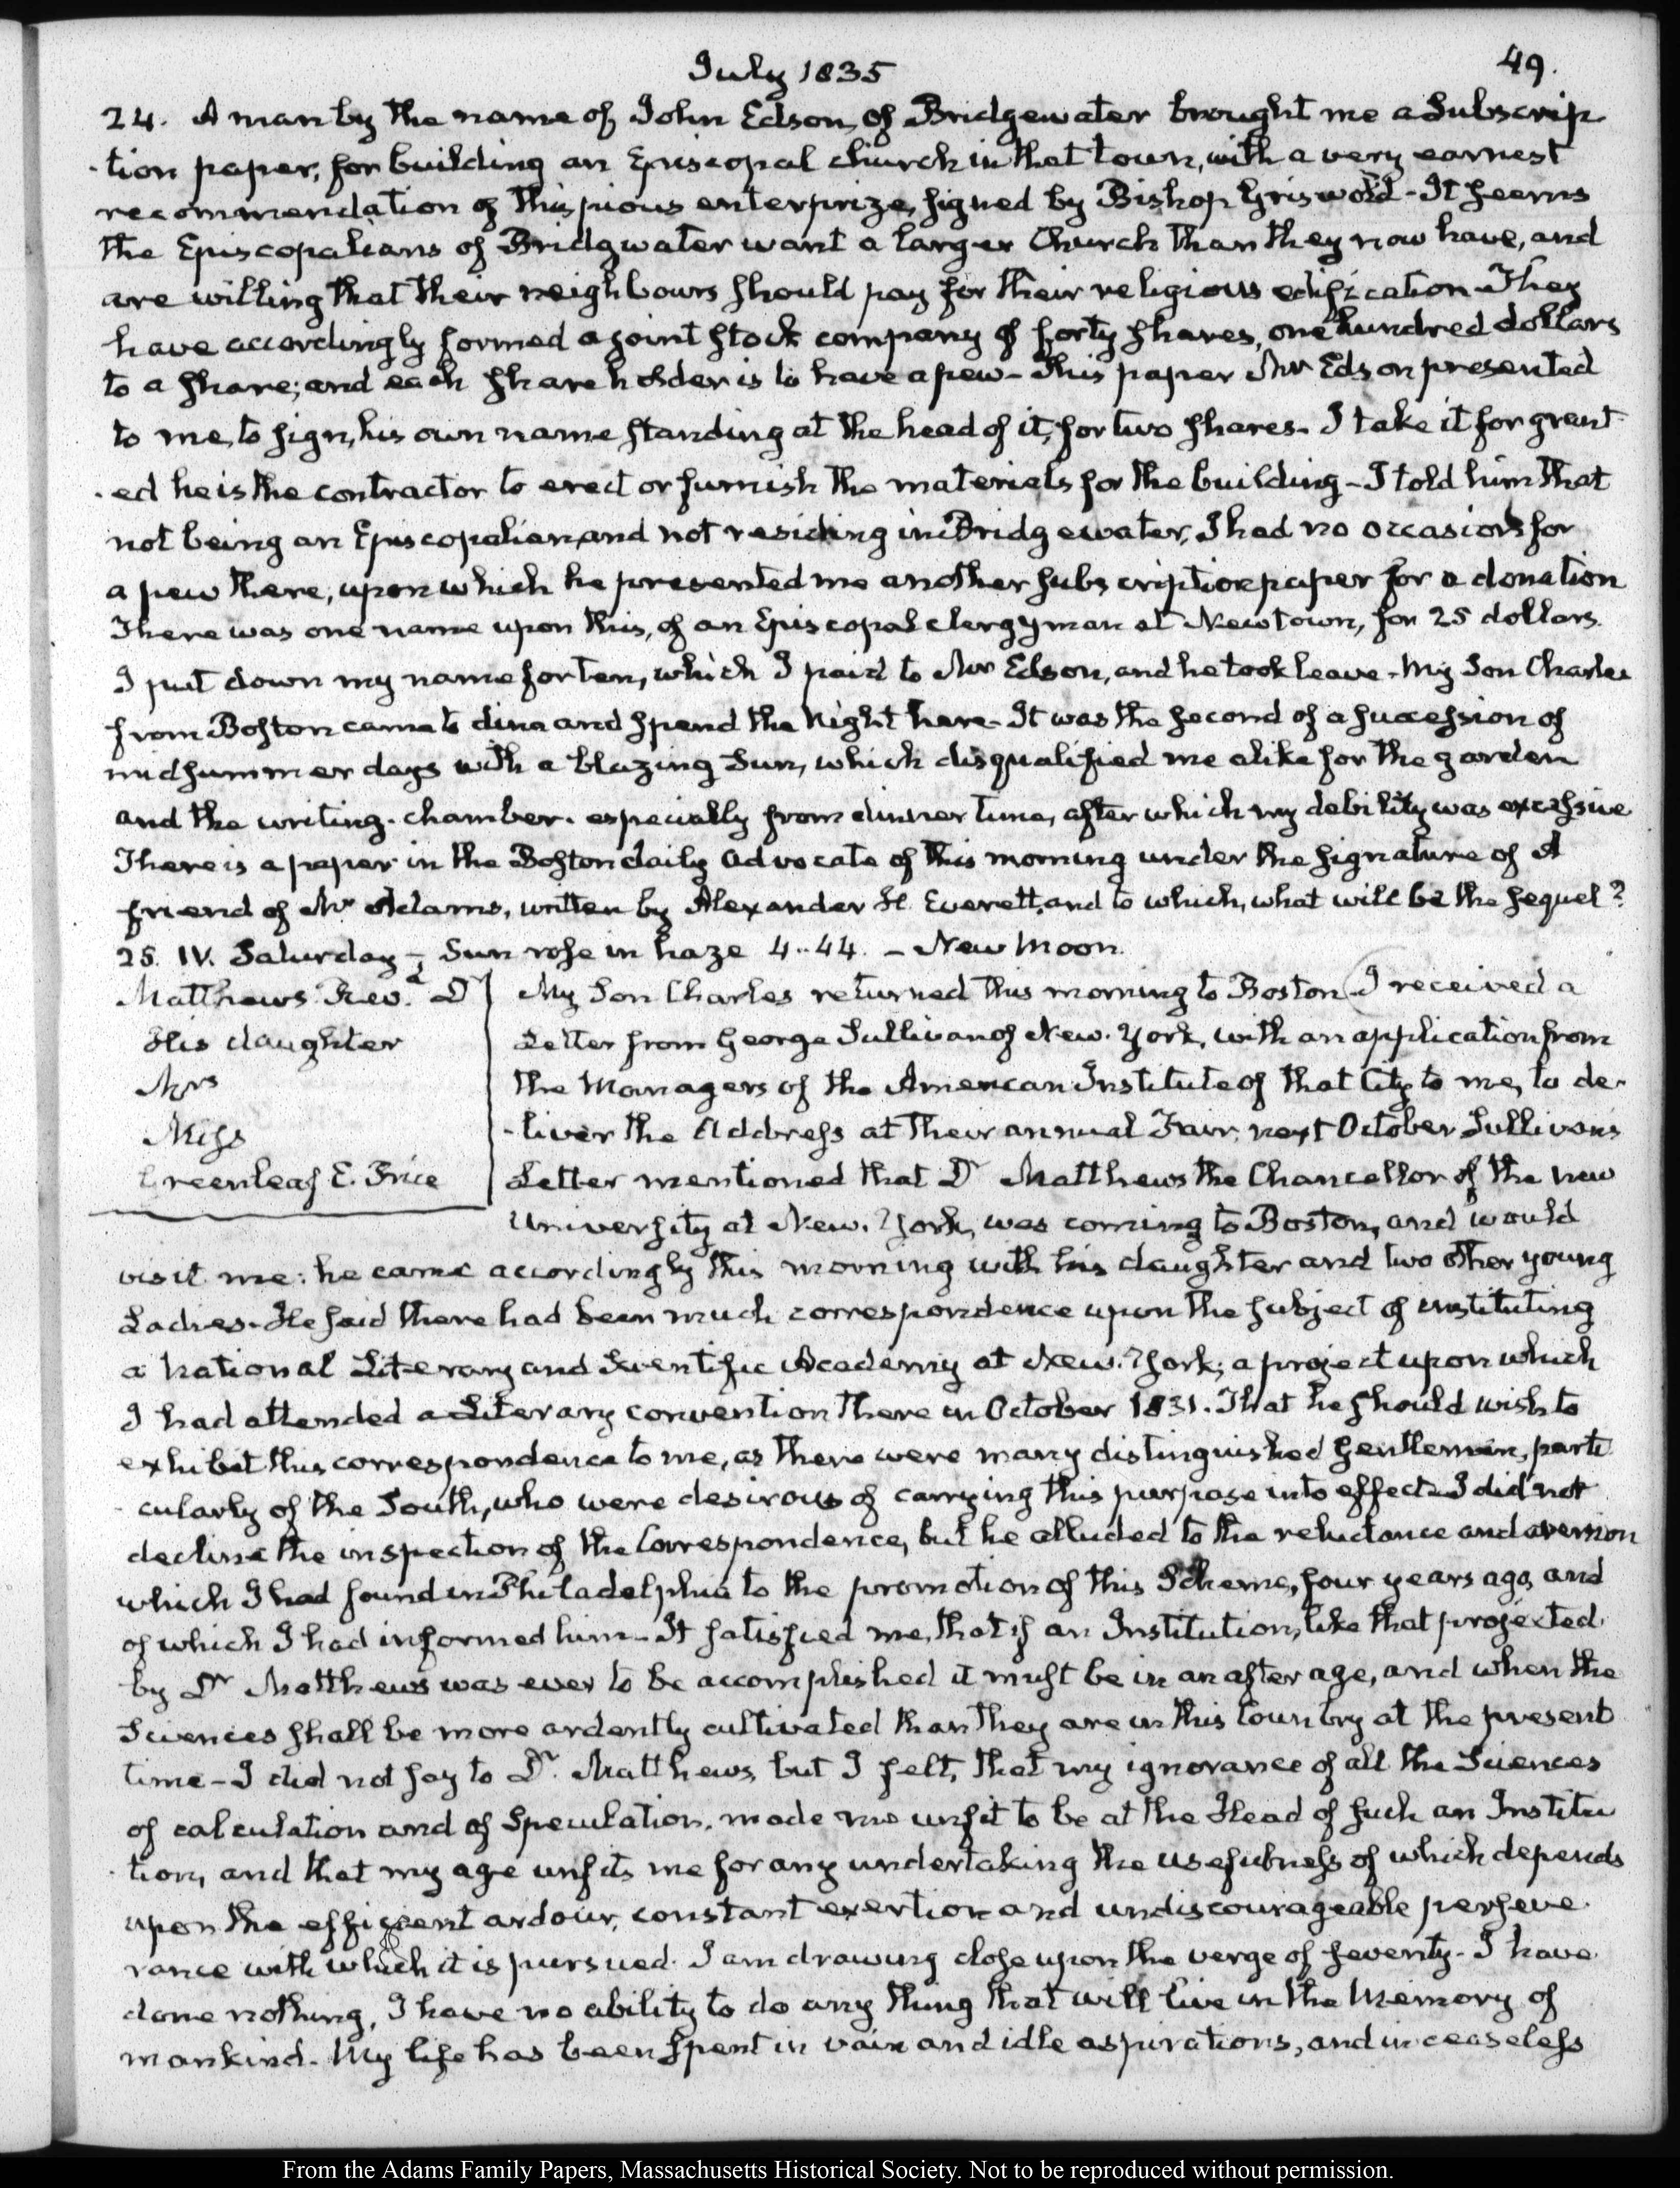 July 1835
49.
24. A man by the name of John Edson, of Bridgewater brought me a Subscrip
-tion paper, for building an Episcopal church in that town, with a very earnest
recommendation of this pious enterprize, signed by Bishop Griswold - It seems
the Episcopalians of Bridgwater want a larger Church than they now have, and
are willing that their neighbours should pay for their religious edification - They
have accordingly formed a joint stock company of forty shares, one hundred dollars
to a share; and each shareholder is to have a pew - This paper Mr Edson presented
to me, to sign, his own name standing at the head of it, for two shares - I take it for grant
-ed he is the contractor to erect or furnish the materials for the building - I told him that
not being an Episcopalian, and not residing in Bridgewater, I had no occasion for
a pew there; upon which he presented me another subscription paper for a donation
There was one name upon this, of an Episcopal clergyman at Newtown, for 25 dollars.
I put down my name for ten, which I paid to Mr Edson, and he took leave - My Son Charles
from Boston came to dine and spend the Night here - It was the second of a succession of
midsummer days with a blazing Sun, which disqualified me alike for the garden
and the writing-chamber. especially from dinner time, after which my debility was excessive
There is a paper in the Boston daily Advocate of this morning under the signature of A
friend of Mr Adams, written by Alexander H. Everett, and to which, what will be the sequel?
25. IV. Saturday - Sun rose in haze 4..44. - New Moon.
Matthews Revd. Dr
His daughter
Mrs
Miss
Greenleaf E. Price
My Son Charles returned this morning to Boston I received a
Letter from George Sullivan of New-York, with an application from
the Managers of the American Institute of that City to me, to de-
-liver the Address at their annual Fair, next October Sullivan's
Letter mentioned that Dr Matthews the Chancellor of the new
University at New-York, was coming to Boston, and would
visit me: he came accordingly this morning with his daughter and two other young
Ladies. He said there had been much correspondence upon the subject of instituting
a National Literary and Scientific Academy at New-York; a project upon which
I had attended a Literary convention there in October 1831. That he should wish to
exhibit this correspondence to me, as there were many distinguished Gentlemen, parti
-cularly of the South, who were desirous of carrying this purpose into effect - I did not
decline the inspection of the Correspondence, but he alluded to the reluctance and aversion
which I had found in Philadelphia to the promotion of this Scheme, four years ago, and
of which I had informed him - It satisfied me, that if an Institution, like that projected
by Dr Matthews was ever to be accomplished it must be in an after age, and when the
Sciences shall be more ardently cultivated than they are in this Country at the present
time - I did not say to Dr. Matthews, but I felt, that my ignorance of all the Sciences
of calculation and of Speculation, made me unfit to be at the Head of such an Institu
-tion, and that my age unfits me for any undertaking the usefulness of which depends
upon the efficient ardour, constant exertion and undiscourageable perseve
rance with which it is pursued. I am drawing close upon the verge of seventy - I have
done nothing, I have no ability to do any thing that will live in the Memory of
mankind. My life has been spent in vain and idle aspirations, and in ceaseless
From the Adams Family Papers, Massachusetts Historical Society. Not to be reproduced without permission.